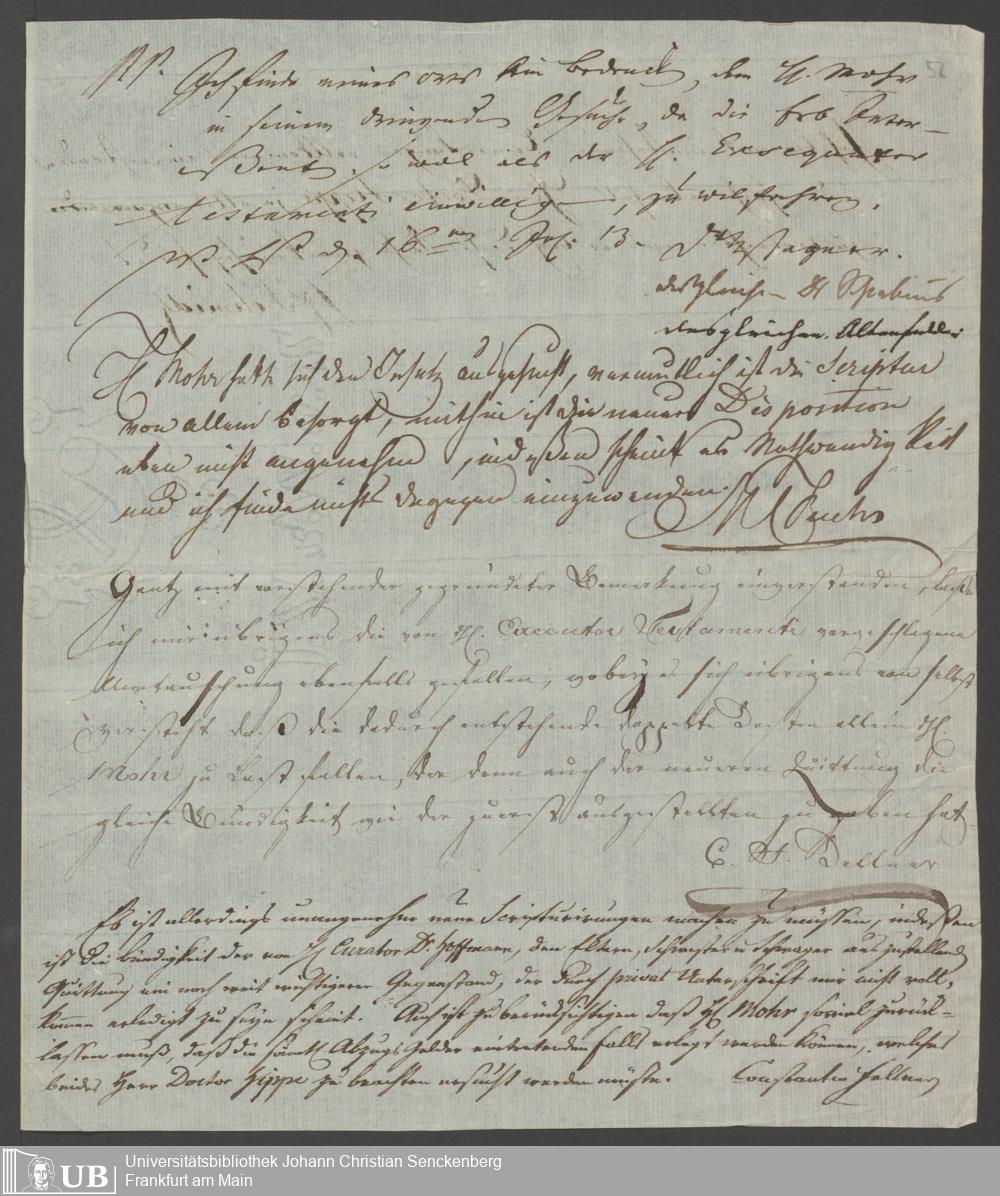 52
PP. Ich finde meines orts kein bedenken, dem H. Mohr
in seinem dringenden Gesuche, da die Erb Inter-
eßenten, so wol als der H. Exsequutor
Testamenti einwilligen, zu wilfahren.
d. 16. Jul. 13.
desgleichen
desgleichen.
H Mohr hatte sich den Insatz ausgesucht, vermuthlich ist die Scriptur
von allem besorgt, mithin ist die neuere Disposition
eben nicht angenehm, indeßen scheint es Nothwendigkeit
und ich finde nichts dagegen einzuwenden.
Ganz mit vorstehender gegründeter Bemerkung einverstanden, laße
ich mir übrigens die von H. Executor Testamenti vorgeschlagene
Vertauschung ebenfalls gefallen, wobey es sich übrigens von selbst
versteht daß die dadurch entstehende doppelte Kosten allein H.
Mohr zu Last fallen, der dann auch der neueren Quittung die
gleiche Bündigkeit wie der zuerst ausgestellten zu geben hat.
Es ist allerdings unangenehm neue Scripturirungen machen zu müssen, indeßen
ist die bündigkeit der von H Curator Dr. Hoffmann, den Eltern, Schwester u. Schwager auszustellend
Quittung ein noch weit wichtigerer Gegenstand, der durch privat Unterschrift mir nicht voll,
kommen erledigt zu seyn scheint. Auch ist zu berücksichtigen daß H Mohr soviel zurück-
lassen muß, daß die sämtl Abzugs Gelder eintretenden falls erlegt werden können, welches
beides Herr Doctor Hippe zu beachten ersucht werden müßte. Constantin Fellner
UB
Universitätsbibliothek Johann Christian Senckenberg
Frankfurt am Main